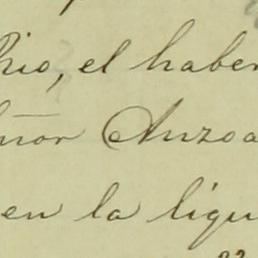 Rio, el haber
ñor Anzoa
en la liqu